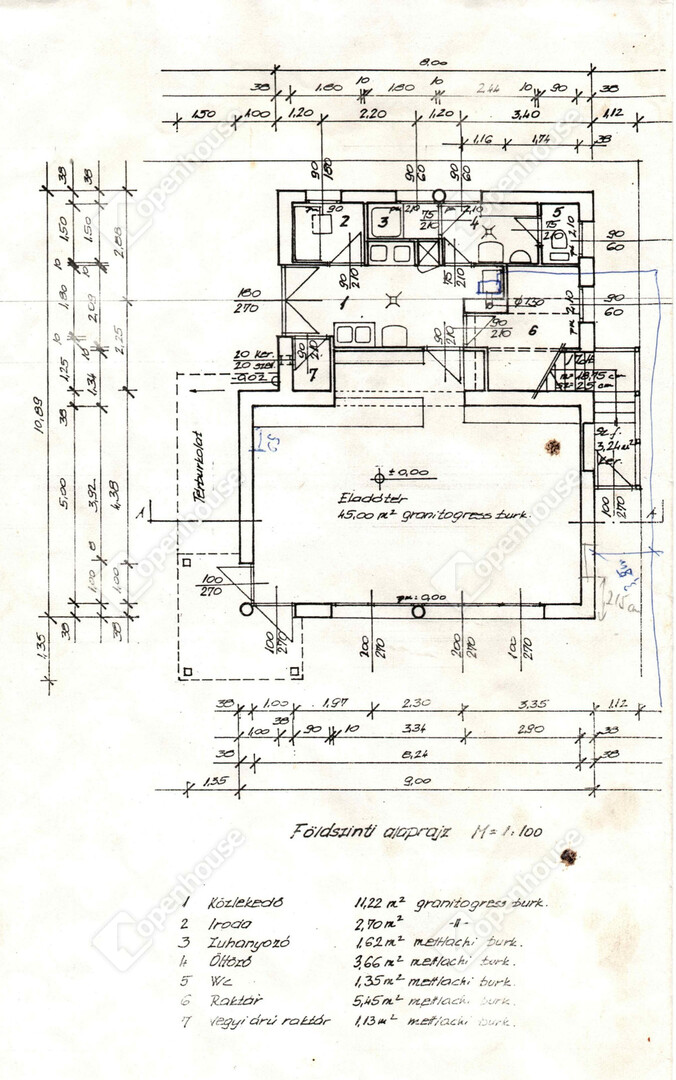 8,00
38 1,80 10 1,80 10 2,44 10 90 38
1,50 1,00 1,20 2,20 1,20 3,40 1,12
1,16 1,74 38
90 180 90 60 90 60
38 38
1,50 1,50 2,88
10 10
1,80 2,09 2,25
10 10
1,25 1,34
38
10,89
5,00 3,92 4,38
8
1,00 1,00
38 38
1,35
90 2 3 210 75 210 210 4 75 210 5 210 90 60
90 210 75 210
180 270 1 Φ 130 210 90 60
90 210 6
90 210 7 90 210
20 ker.
20 szel.
-0,02
m = 18,75 cm
sz = 25 cm
Szf.
3,24 m²
ker.
Térburkolat
± 0,00
Eladótér
45,00 m² granitogress burk.
A A
100 270
100 270
pm: 0,00
215 cm
100 270 200 270 200 270 100 270
38 1.00 1,97 2.30 3.35 1.12
1,00 38 90 10 3,34 2.90 38
38 8,24 38
1,35 9,00
Földszinti alaprajz M = 1:100
1 Közlekedő 11,22 m² granitogress burk.
2 Iroda 2,70 m² -11-
3 Zuhanyozó 1,62 m² mettlachi burk.
4 Öltöző 3,66 m² mettlachi burk.
5 Wc 1,35 m² mettlachi burk.
6 Raktár 5,45 m² mettlachi burk.
7 Vegyi árú raktár 1,13 m² mettlachi burk.
openhouse
openhouse
openhouse
openhouse
openhouse
openhouse
openhouse
openhouse